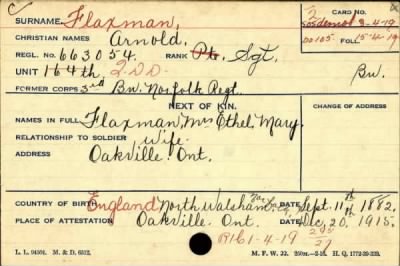 C
SURNAME. Flaxman,
CARD NO. 2
CHRISTIAN NAMES Arnold.
Sosdemob 3-4-19
REGL. NO. 663054. RANK Pte. Sgt.
DO105. FOLL. 15-4-19
UNIT 164th, 2.D.D. Bn.
FORMER CORPS 3rd Bn. Norfolk Regt.
NEXT OF KIN.
CHANGE OF ADDRESS
NAMES IN FULL Flaxman, Mrs Ethel Mary.
RELATIONSHIP TO SOLDIER Wife.
ADDRESS Oakville. Ont.
COUNTRY OF BIRTH England North Walsham DATE Sept. 11th 1882.
PLACE OF ATTESTATION Oakville. Ont. DATE Dec. 20th 1915.
1-4-19
L. L. 94501. M. & D. 6512.
M. F. W. 22.
H. Q. 1772-39-339.